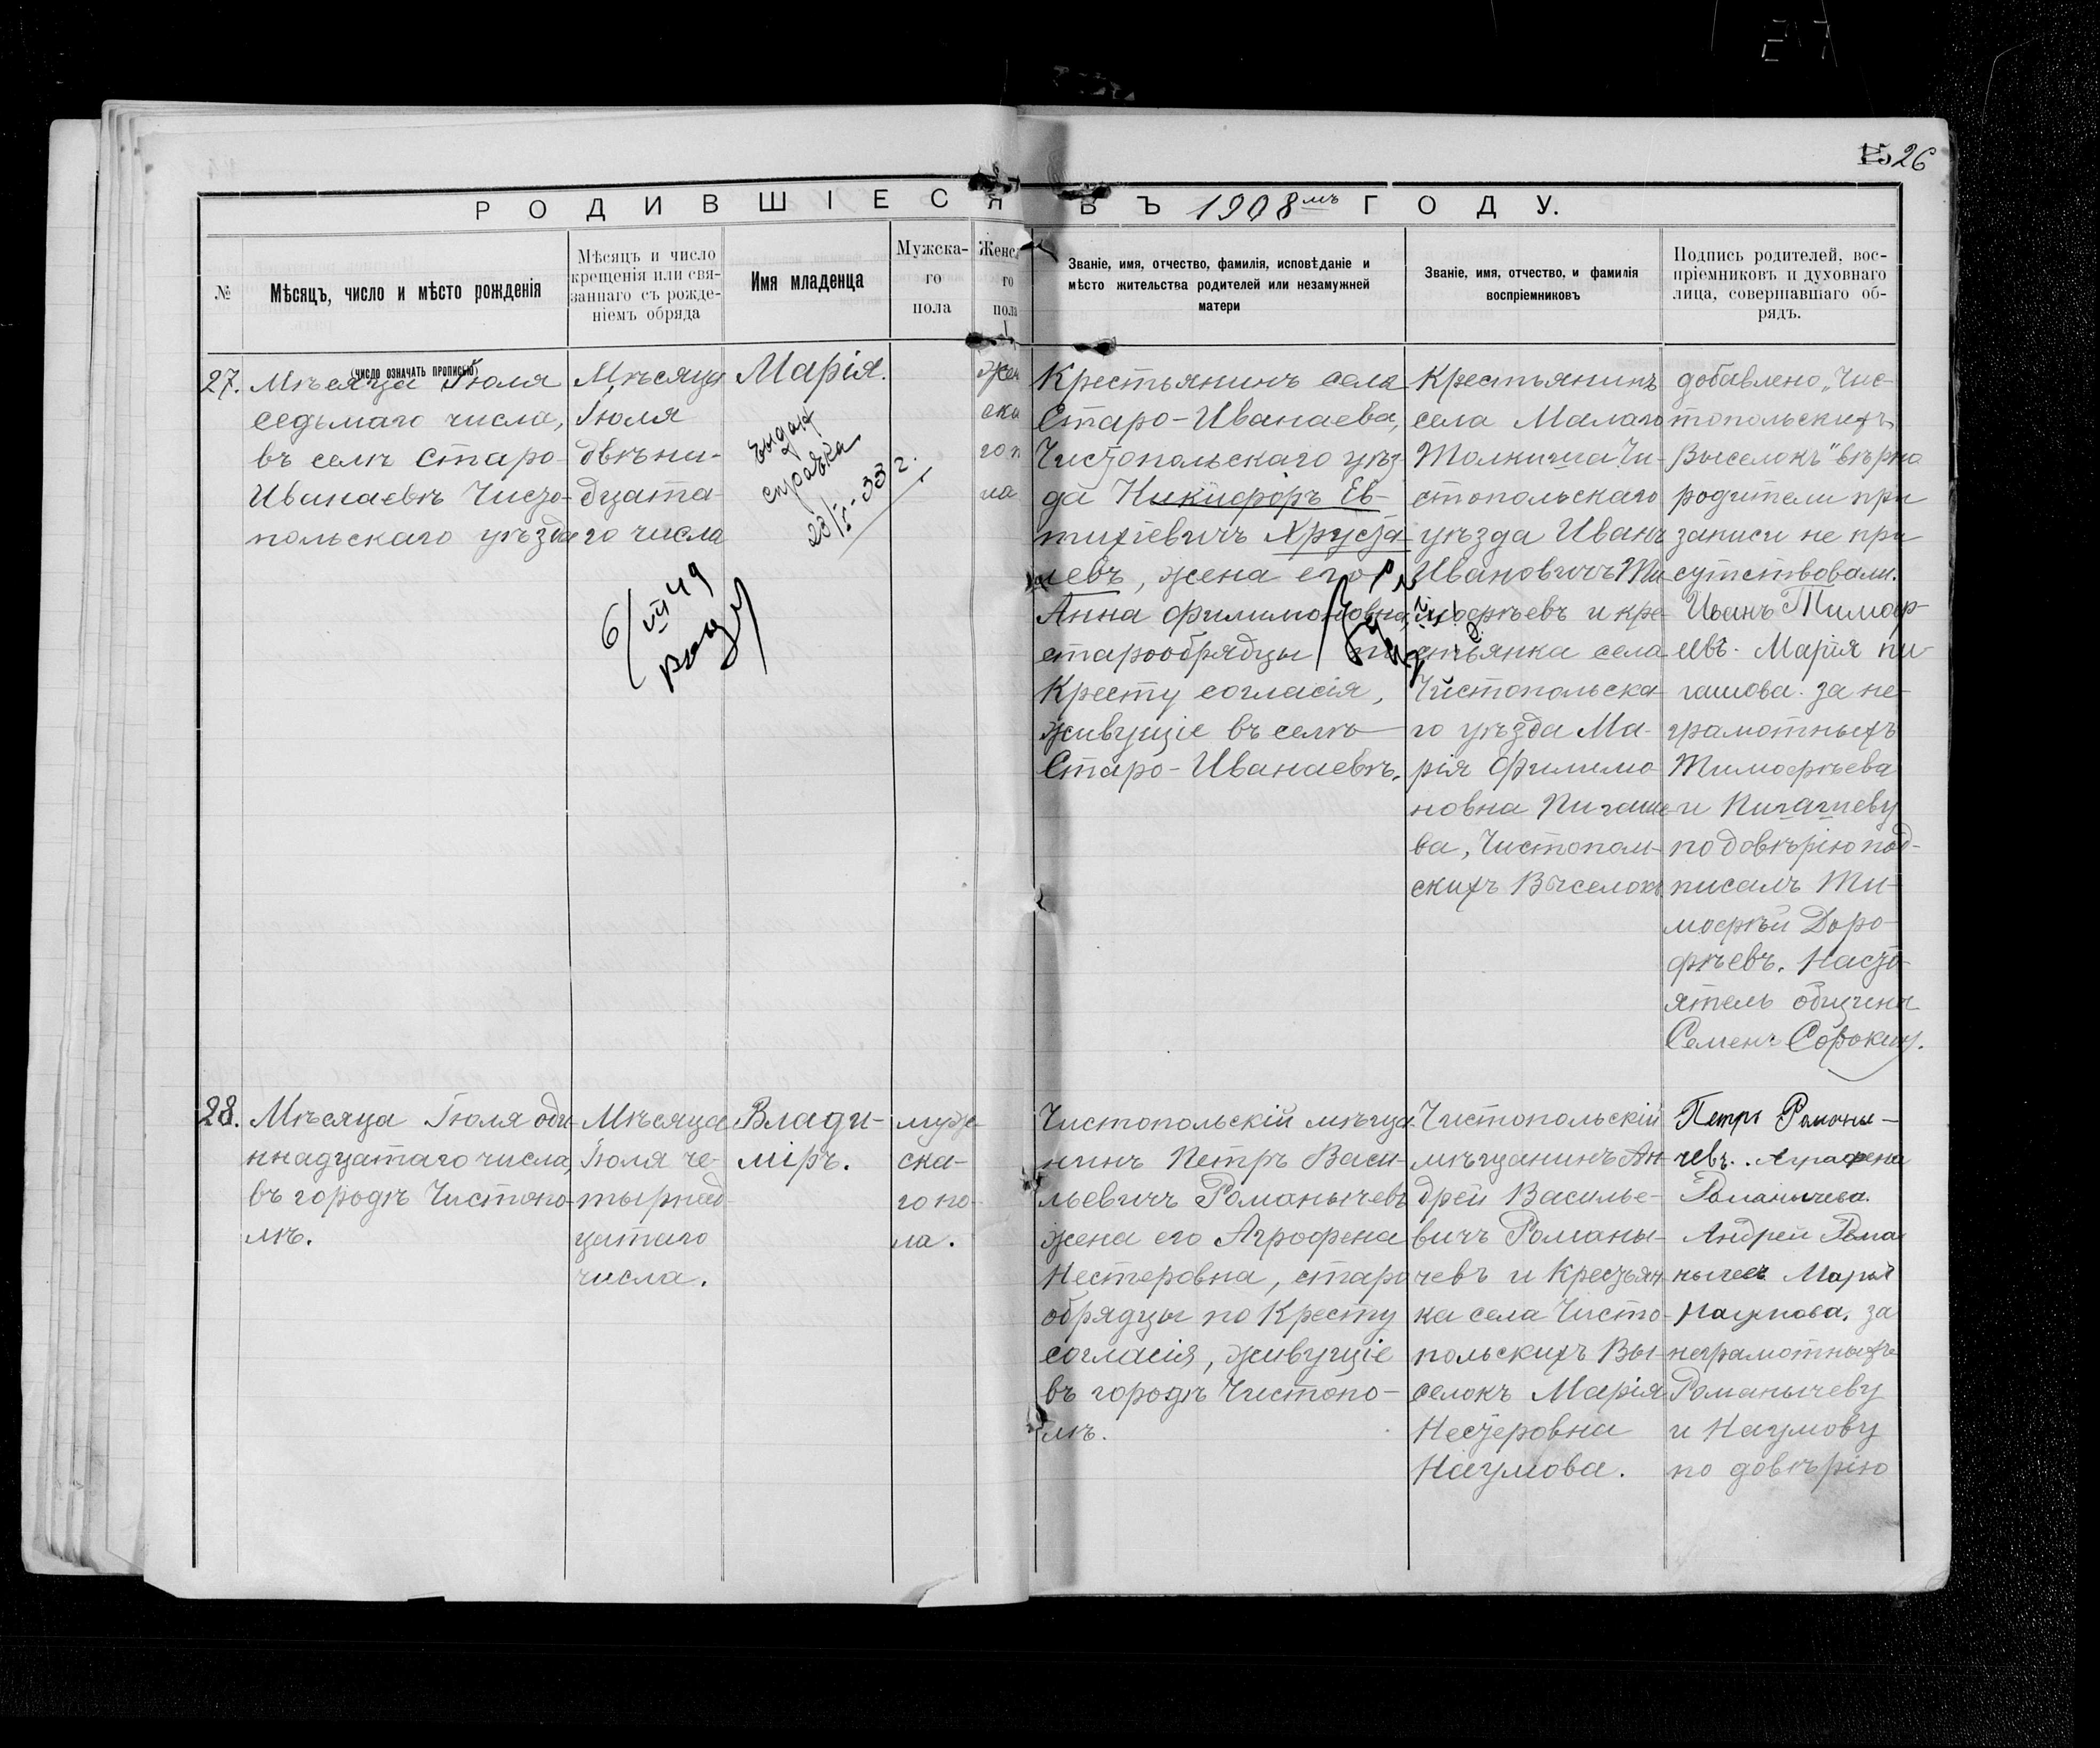 27
15 26
РОДИВШІЕСЯ ВЪ 1908мъ ГОДУ.
№
Мѣсяцъ, число и мѣсто рожденія
(число означать прописью)
Мѣсяцъ и число
крещенія или свя-
заннаго съ рожде-
ніемъ обряда
Имя младенца
Мужска-
го
пола
Женс
го
пола
Званіе, имя, отчество, фамилія, исповѣданіе и
мѣсто жительства родителей или незамужней
матери
Званіе, имя, отчество, и фамилія
воспріемниковъ
Подпись родителей, вос-
пріемниковъ и духовнаго
лица, совершавшаго об-
рядъ.
27.
Мѣсяца Іюля
седьмаго числа,
въ селѣ Старо-
Иванаевѣ Чисто-
польскаго уѣзда
Мѣсяца
Іюля
двѣна-
дцата-
го числа
Марія.
выдана
справка
23/I-33 г.
6/VII 49
жен
ска
го п
ла
Крестьянинъ села
Старо-Иванаева,
Чистопольскаго уѣз
да Никифоръ Ев-
тихіевичъ Хруста
левъ, жена его
Анна Филимоновна,
старообрядцы по
Кресту согласія,
живущіе въ селѣ
Старо-Иванаевѣ.
Крестьянинъ
села Малаго
Толкиша Чи-
стопольскаго
уѣзда Иванъ
Ивановичъ Ти-
мофѣевъ и кре-
стьянка села
Чистопольска-
го уѣзда Ма-
рія Филимо-
новна Пигаше
ва, Чистополь-
скихъ Выселокъ
добавлено „Чис-
топольскихъ
Выселокъ" вѣрно
родители при
записи не при
сутствовали.
Иванъ Тимоф-
еевъ. Марія пи-
гашова. за не-
грамотныхъ
Тимофѣева
и Пигашеву
по довѣрію под-
писалъ Ти-
мофѣй Доро-
фѣевъ. Насто-
ятель общины
Семенъ Сорокинъ.
28.
Мѣсяца Іюля оди-
ннадцатаго числа,
въ городѣ Чистопо-
лѣ.
Мѣсяца
Іюля че-
тырнад-
цатаго
числа.
Влади-
міръ.
муже-
ска-
го по-
ла.
Чистопольскій мѣща-
нинъ Петръ Васи-
льевичъ Романычевъ
жена его Агрофена
Нестеровна, старо
обрядцы по Кресту
согласія, живущіе
въ городѣ Чистопо-
лѣ.
Чистопольскій
мѣщанинъ Ан-
дрей Василье-
вичъ Романы-
чевъ и Крестьян-
ка села Чисто-
польскихъ Вы-
селокъ Марія
Нестеровна
Наумова.
Петръ Романы-
чевъ. Аграфена
Романычева.
Андрей Рома
нычевъ Марья
Наумова. за
неграмотныхъ
Романычеву
и Наумову
по довѣрію